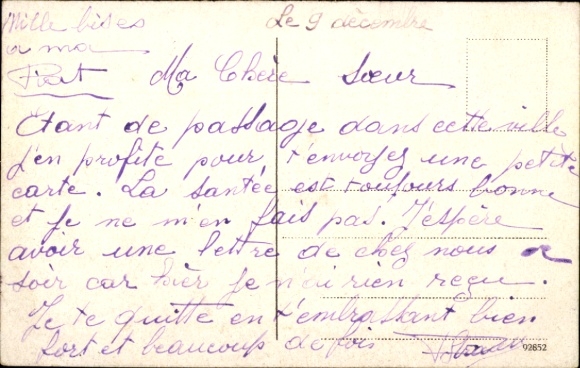 Mille bises
a ma
Le 9 décembre
Ma Chère Sœur
Etant de passage dans cette ville
j'en profite pour t'envoyez une petite
carte. La santée est toujours bonne
et je ne m'en fais pas. J'espère
avoir une lettre de chez nous ce
soir car hier je n'ai rien reçu.
Je te quitte en t'embrassant bien
fort et beaucoup de fois
92852